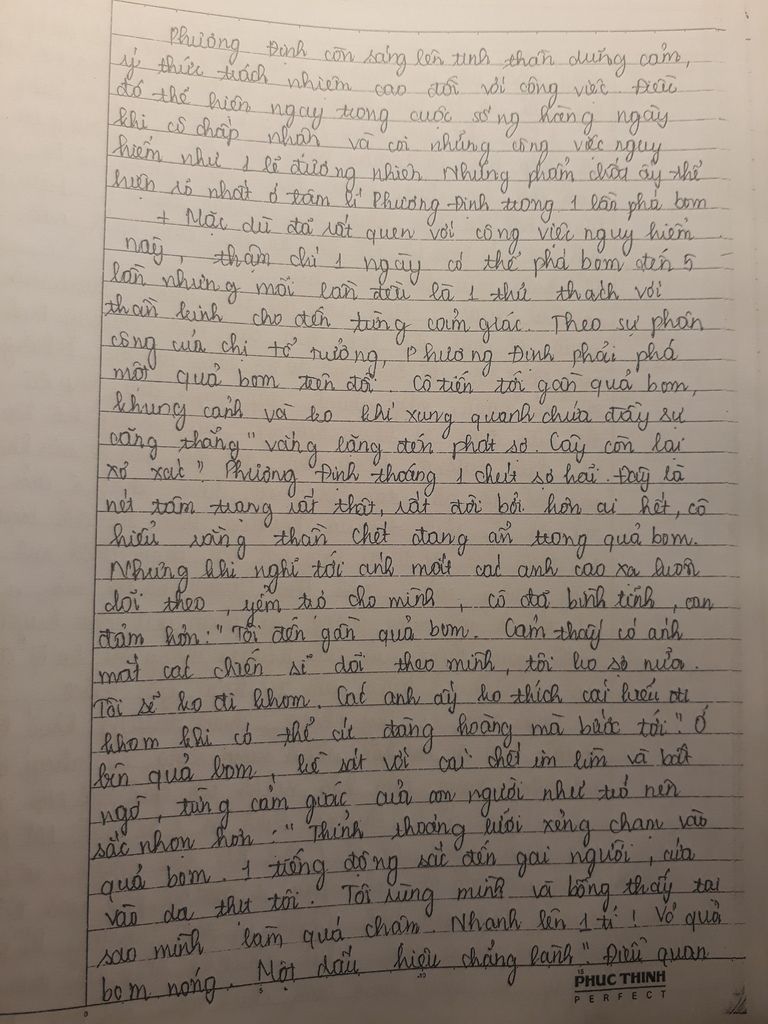 Phương Định còn sáng lên tinh thần dũng cảm,
ý thức trách nhiệm cao đối với công việc. Điều
đó thể hiện ngay trong cuộc sống hàng ngày
khi cô chấp nhận và coi những công việc nguy
hiểm như 1 lẽ đương nhiên. Những phẩm chất ấy thể
hiện rõ nhất ở tâm lí Phương Định trong 1 lần phá bom
+ Mặc dù đã rất quen với công việc nguy hiểm
này, thậm chí 1 ngày có thể phá bom đến 5
lần nhưng mỗi lần đều là 1 thử thách với
thần kinh cho đến từng cảm giác. Theo sự phân
công của chị tổ trưởng, Phương Định phải phá
một quả bom trên đồi. Cô tiến tới gần quả bom,
khung cảnh và ko khí xung quanh chứa đầy sự
căng thẳng "vắng lặng đến phát sợ. Cây còn lại
xơ xác". Phương Định thoáng 1 chút sợ hãi. Đây là
nét tâm trạng rất thật, rất đời bởi hơn ai hết, cô
hiểu rằng thần chết đang ẩn trong quả bom.
Nhưng khi nghĩ tới ánh mắt các anh cao xạ luôn
dõi theo, yểm trợ cho mình, cô đã bình tĩnh, can
đảm hơn: "Tôi đến gần quả bom. Cảm thấy có ánh
mắt các chiến sĩ dõi theo mình, tôi ko sợ nữa.
Tôi sẽ ko đi khom. Các anh ấy ko thích cái kiểu đi
khom khi có thể cứ đàng hoàng mà bước tới". Ở
bên quả bom, kề sát với cái chết im lìm và bất
ngờ, từng cảm giác của con người như trở nên
sắc nhọn hơn: "Thỉnh thoảng lưỡi xẻng chạm vào
quả bom. 1 tiếng động sắc đến gai người, cứa
vào da thịt tôi. Tôi rùng mình và bỗng thấy tại
sao mình làm quá chậm. Nhanh lên 1 tí! Vỏ quả
bom nóng. Một dấu hiệu chẳng lành". Điều quan
PHUC THINH
PERFECT